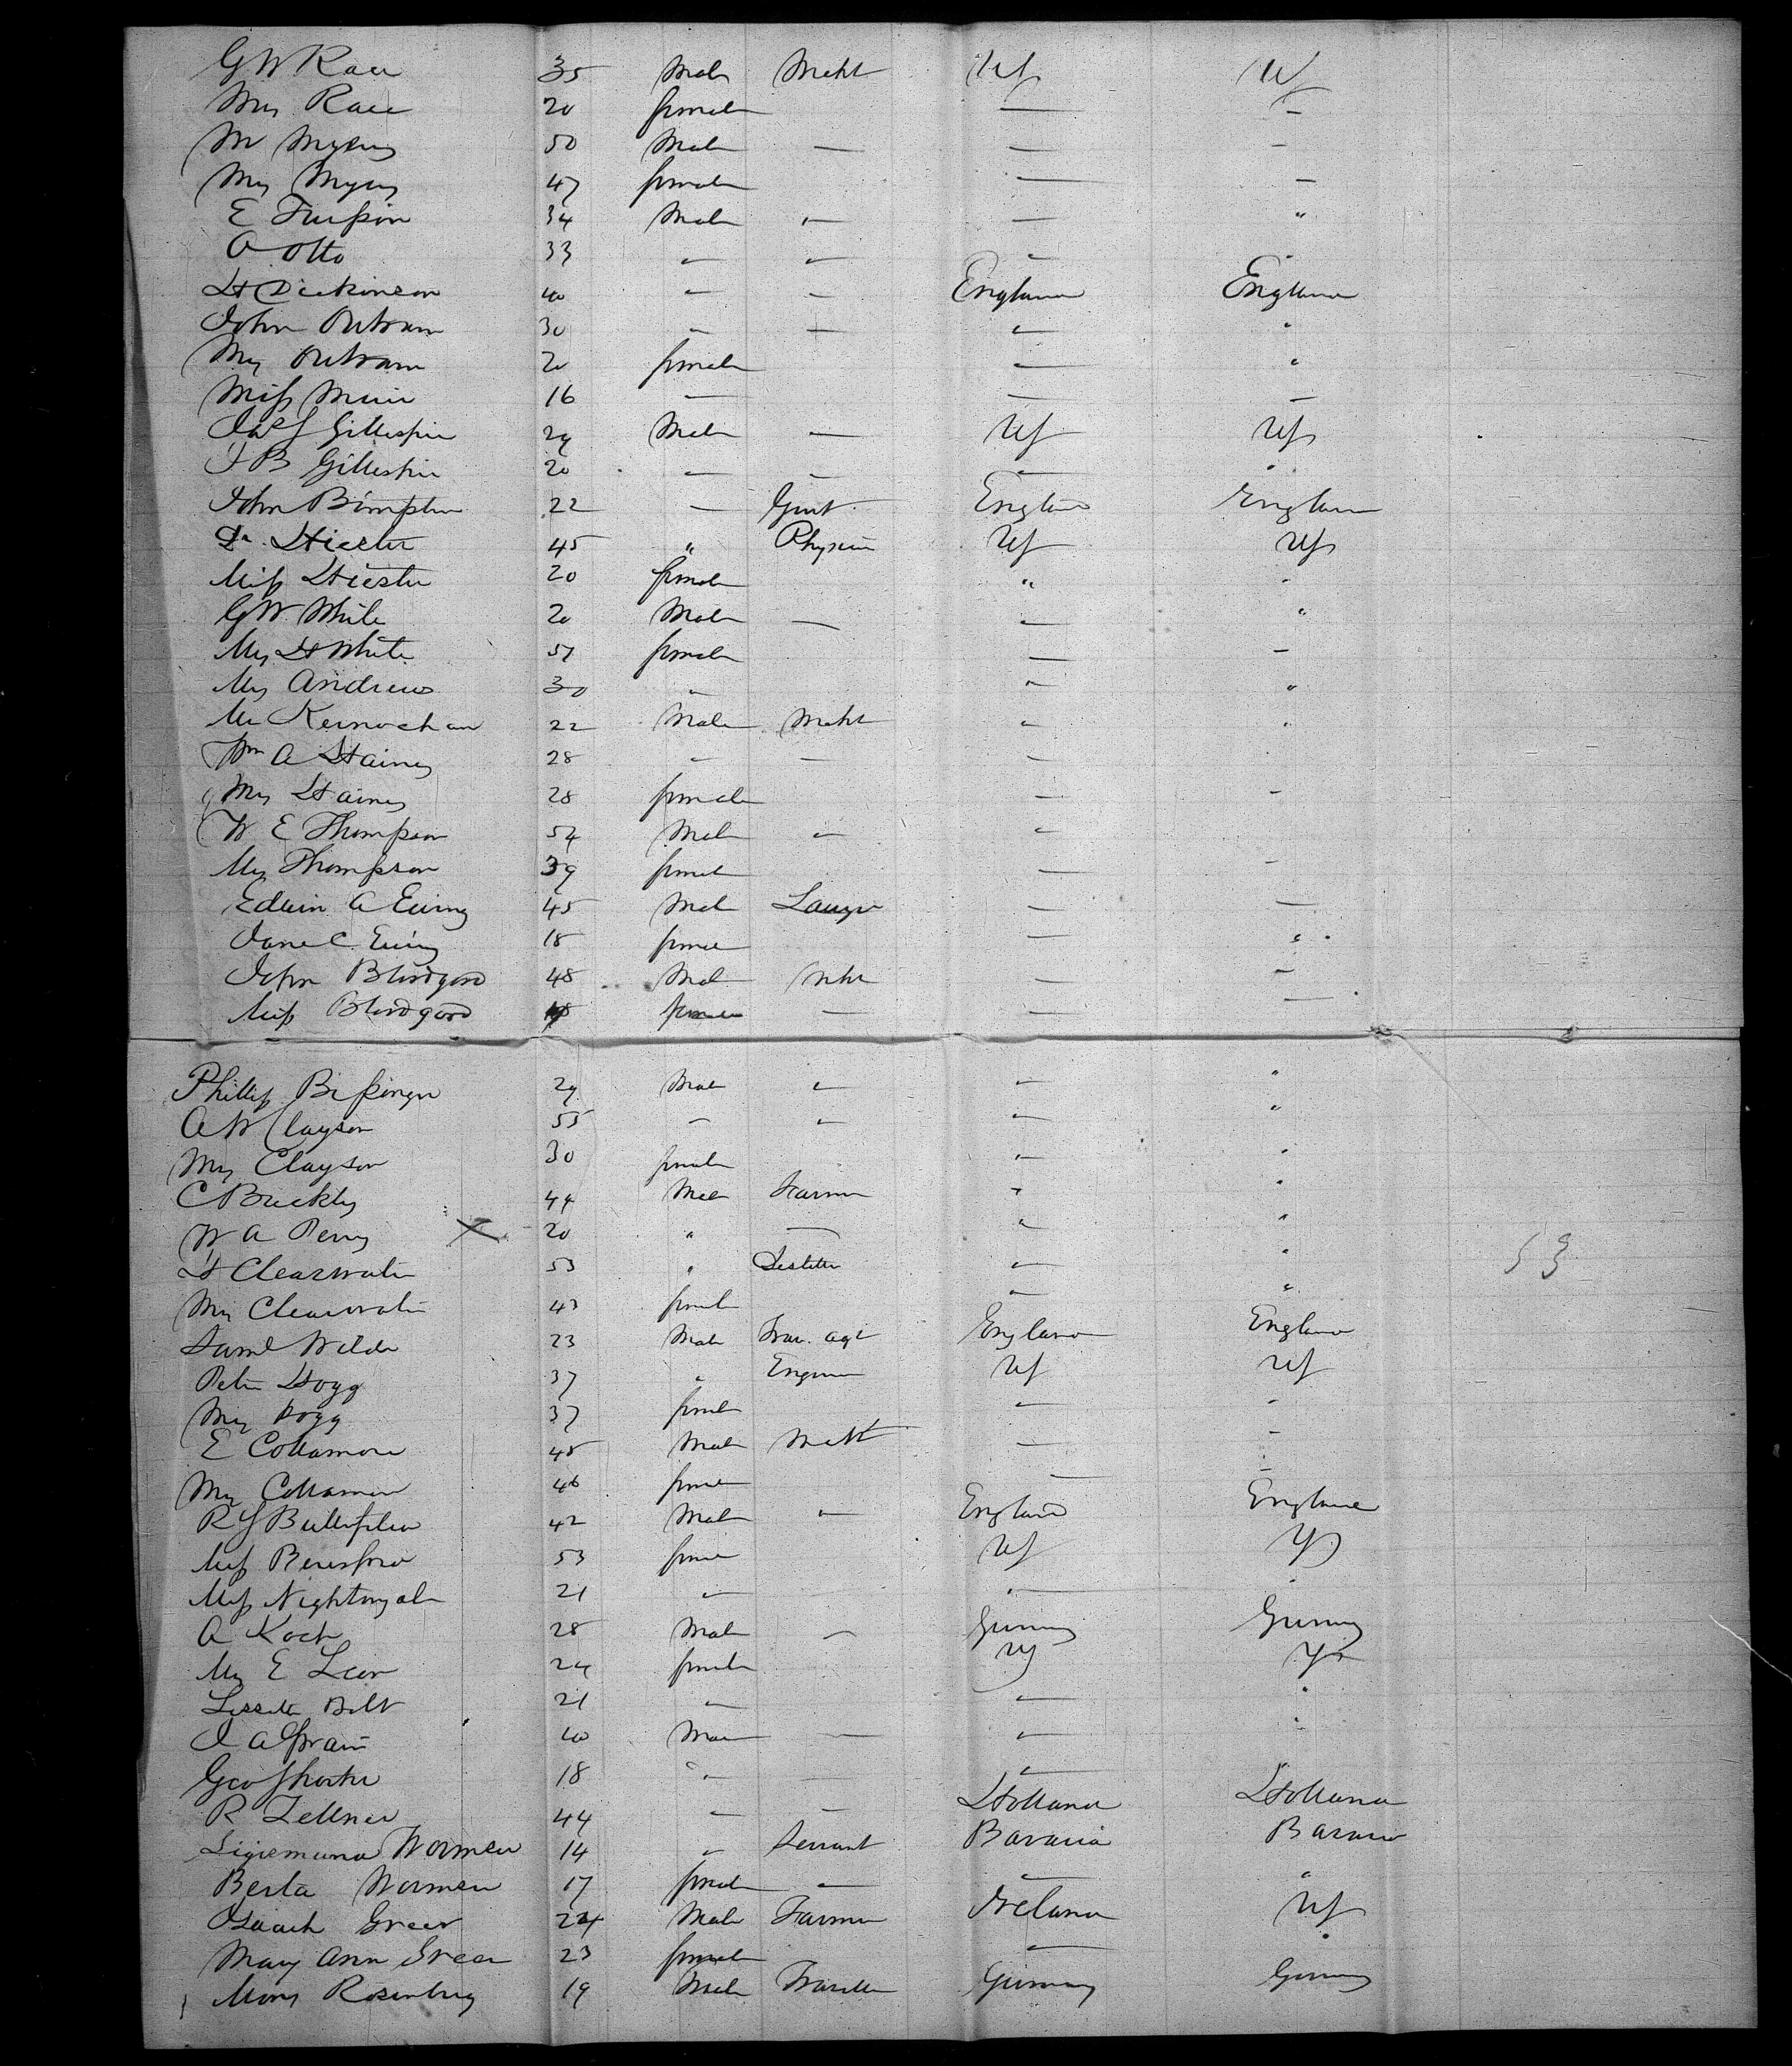 G W Race 35 Male Mcht US US
Mrs Race 20 female — —
Mr Myers 50 Male — — —
Mrs Myers 47 female — —
E 34 Male — — "
A Otto 33 " — — "
H Dickinson 40 — — England England
John Outram 30 — — " "
Mrs Outram 20 female — "
Miss Muir 16 — — —
Jas S Gillespie 29 Male — US US
J B Gillespie 20 — — — "
John 22 — Gent England England
Dr. Hiester 45 " Physcian US US
Miss Hiester 20 female " "
G W White 20 Male — — "
Mrs H White 51 female — —
Mrs Andrews 30 " " "
Mr Kernochan 22 Male Mcht " "
Wm A Haines 28 — — — "
Mrs Haines 28 female — —
W E Thompson 54 Male — —
Mrs Thompson 39 female — —
Edwin A Ewing 45 Male Lawyer — —
Jane C. Ewing 18 female — "
John Bloodgood 48 Male Mcht — —
Miss Bloodgood 18 female — — —
Phillip Bissinger 29 Male " — "
A W Clayson 55 — " — "
Mrs Clayson 30 female — "
C Buckley 44 Male Farmer " "
W A Perry X 20 " — " "
H Clearwater 53 " — "
Mrs Clearwater 43 female — "
53
Saml Wilde 23 Male Trav. agt England England
Peter Hogg 37 " Engineer US US
Mrs Hogg 37 female — —
E Collamore 45 Male Mcht — —
Mrs Collamore 46 female — —
R S 42 Male — England England
Miss Beresford 53 female US US
Miss Nightingale 21 — — "
A Koch 28 Male — Germany Germany
Mrs E Leon 24 female US US
21 — — "
J A 20 Male — — "
Geo 18 — — — "
R Zellner 44 — — Holland Holland
Sigismund Wormser 14 " Servant Bavaria Bavaria
Berta Wormser 17 female — — "
Isaach Greer 24 Male Farmer Ireland US
Mary Ann Greer 23 female — "
Morris Rosenberg 19 Male Traveller Germany Germany